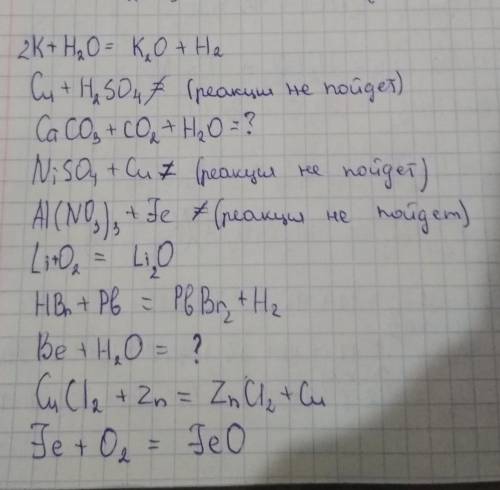 2K + H₂O = K₂O + H₂
Cu + H₂SO₄ ≠ (реакция не пойдет)
CaCO₃ + CO₂ + H₂O = ?
NiSO₄ + Cu ≠ (реакция не пойдет)
Al(NO₃)₃ + Fe ≠ (реакция не пойдет)
Li + O₂ = Li₂O
HBr + Pb = PbBr₂ + H₂
Be + H₂O = ?
CuCl₂ + Zn = ZnCl₂ + Cu
Fe + O₂ = FeO